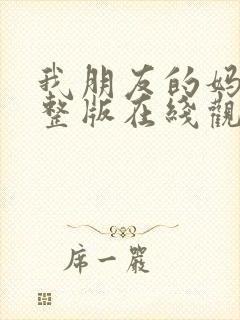 我朋友的妈
整版在线觀
席一嚴